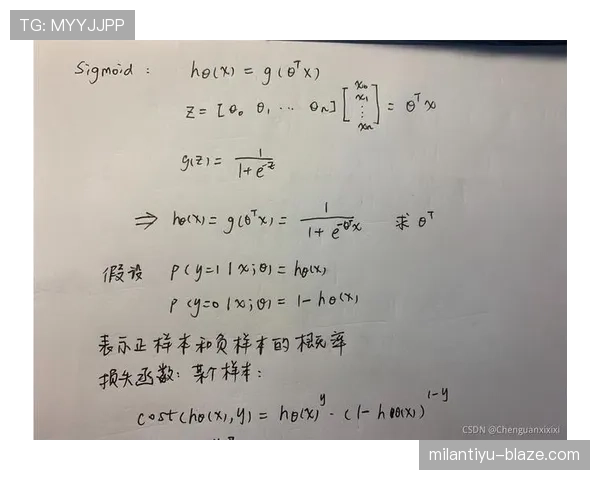 TG: MYYJJPP
Sigmoid: hθ(x) = g(θᵀx)
z = [θ₀ θ₁ ... θₙ] [x₀ x₁ ⋮ xₙ] = θᵀx
g(z) = 1 / (1 + e^-z)
⇒ hθ(x) = g(θᵀx) = 1 / (1 + e^-θᵀx) 求 θᵀ
假设 P(y=1|x;θ) = hθ(x)
P(y=0|x;θ) = 1-hθ(x)
表示正样本和负样本的概率
损失函数: 某个样本:
cost(hθ(x), y) = hθ(x)^y · (1-hθ(x))^1-y
CSDN @Chenguanxixixi
milantiyu-blaze.com